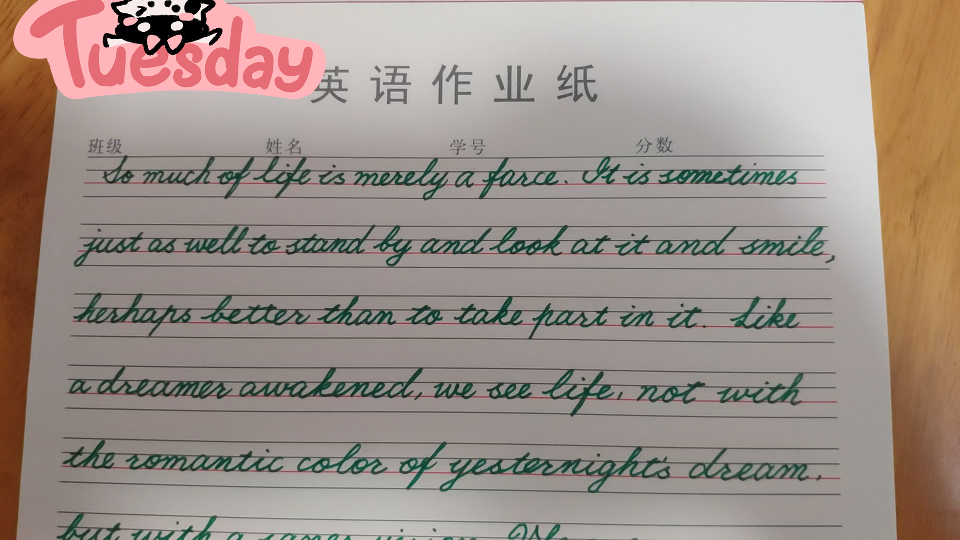 Tuesday
英语作业纸
班级 姓名 学号 分数
So much of life is merely a farce. It is sometimes
just as well to stand by and look at it and smile,
herhaps better than to take part in it. Like
a dreamer awakened, we see life, not with
the romantic color of yesternight's dream.
but with a saner vision.